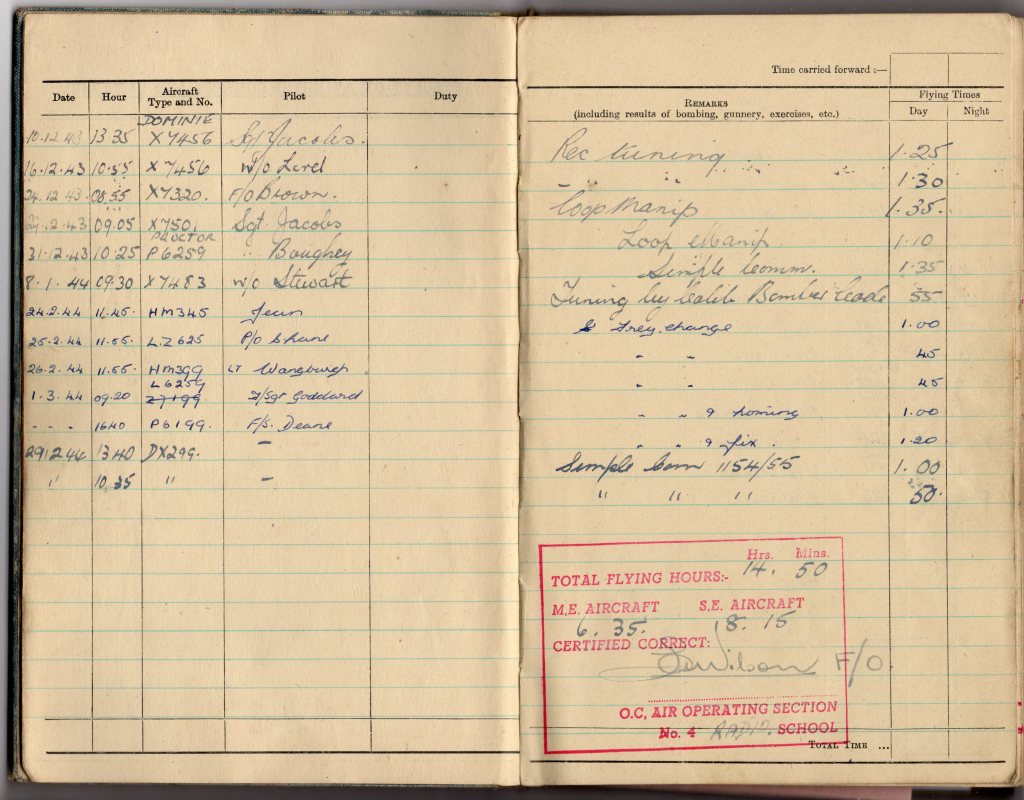 Time carried forward :—
Date Hour Aircraft Type and No. Pilot Duty
REMARKS (including results of bombing, gunnery, exercises, etc.) Flying Times Day Night
DOMINIE
10.12.43 13 35 X7456 Sgt Jacobs. Rec tuning 1.25
16.12.43 10.55 X 7456 w/o Lord 1.30
24.12.43 08.55 X7320. F/O Brown. Loop Manip 1.35.
29.12.43 09.05 X750 Sgt. Jacobs Loop Manip. 1.10
PROCTOR
31.12.43 10.25 P6259 " Boughey Simple Comm. 1.35
8.1.44 09.30 X7483 w/c Stewart Tuning by Calib Bomber Code 55
24.2.44 11.45. HM345 & Freq. change 1.00
25.2.44 11.55. LZ625 P/O Shane " " 45
26.2.44 11.55. HM399 LT " " 45
L6259
1.3.44 09.20 F/Sgt Goddard " " & homing 1.00
- - - 1640 P6199. F/S. Deane " " & fix. 1.20
29.2.44 13.40 DX299. — Simple Com 1154/55 1.00
" 10.35 " — " " " 50.
Hrs. Mins.
TOTAL FLYING HOURS:- 14. 50
M.E. AIRCRAFT S.E. AIRCRAFT
6. 35. 8. 15
CERTIFIED CORRECT:
Wilson F/O.
O.C. AIR OPERATING SECTION
No. 4 RADIO SCHOOL
TOTAL TIME ...